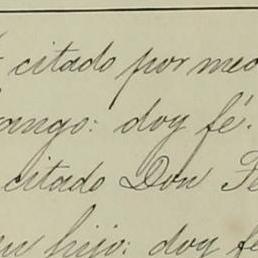 citado por med
ango: doy fé.
citado Don Fe
su hijo: doy fé